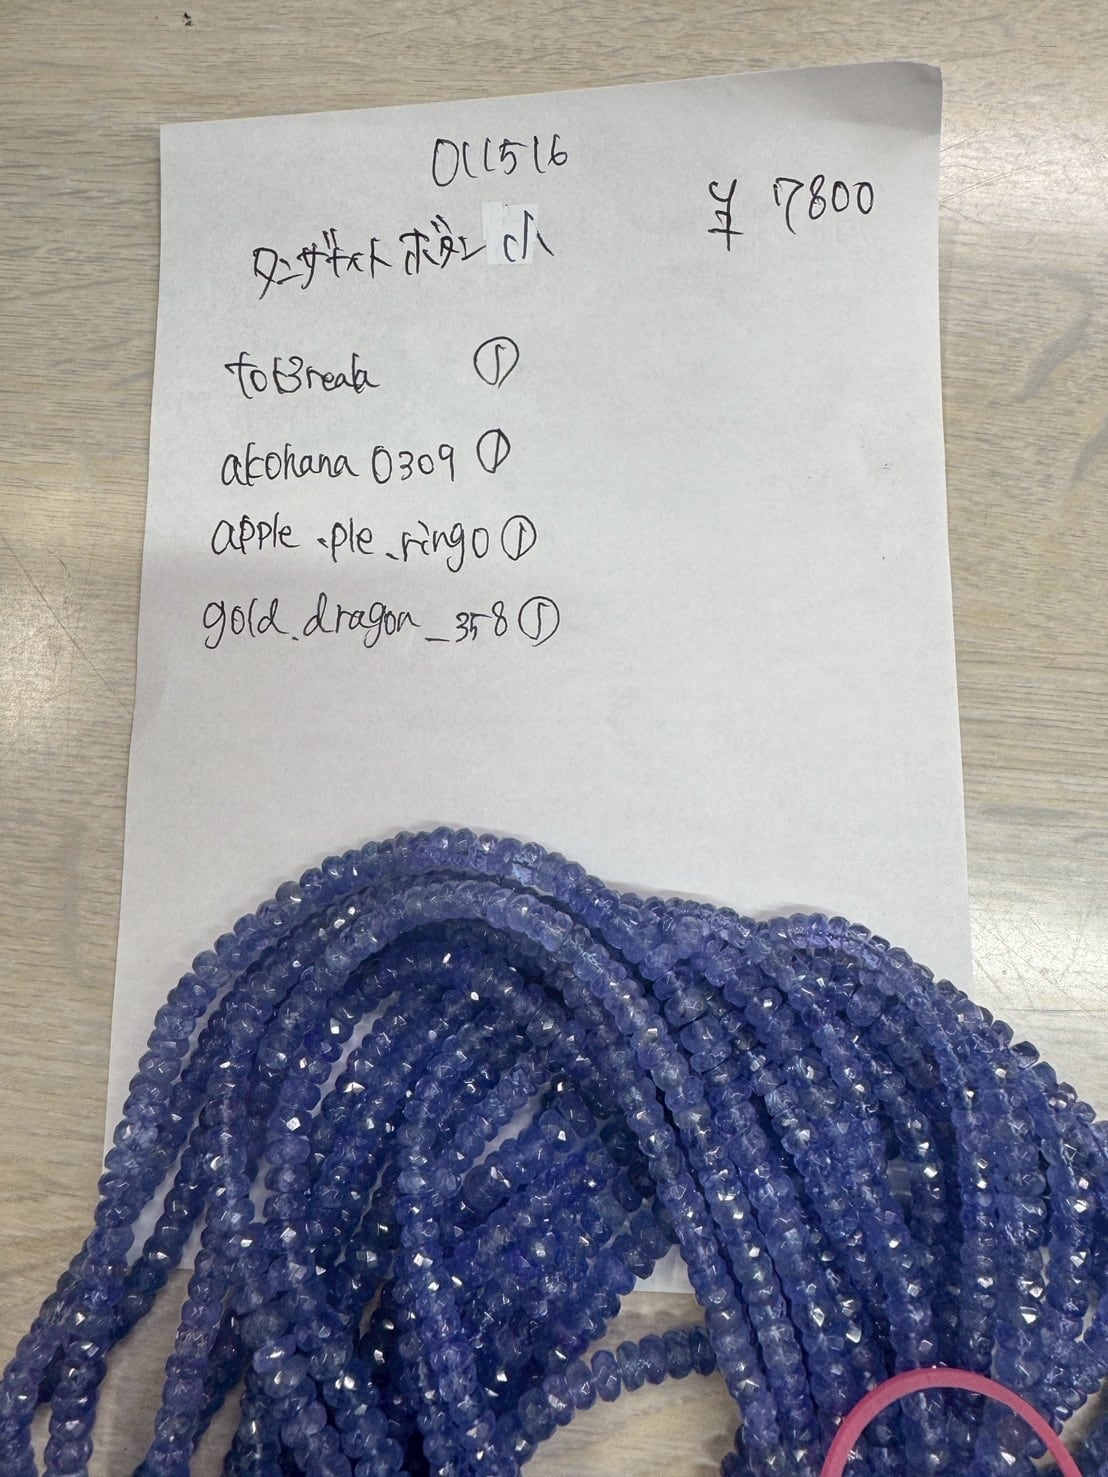 011516
¥ 7800
タンザナイト ボタン 小
toBreak ①
akohana 0309 ①
apple.ple.ringo ①
gold.dragon_358 ①